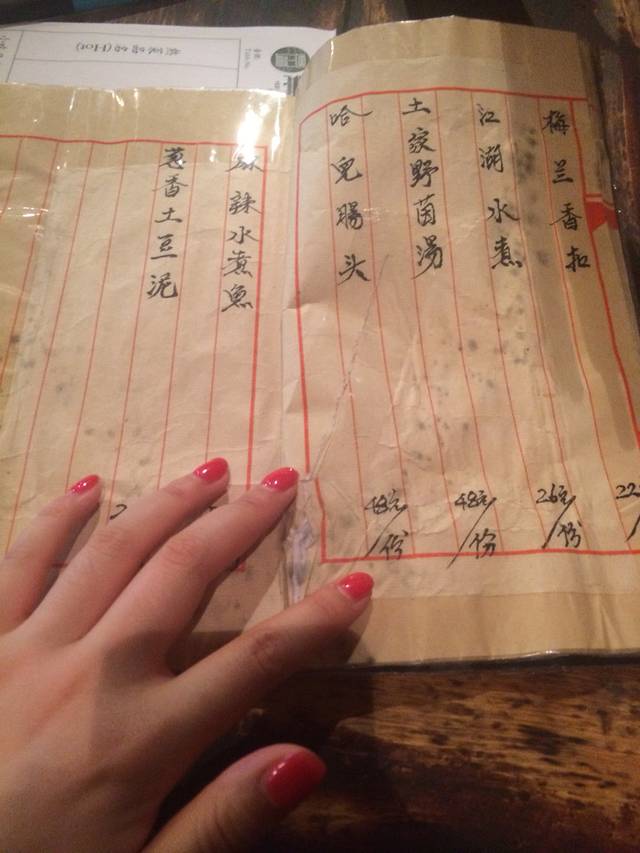 梅兰香扣
22
江湖水煮
26元/份
土家野茵湯
48元/份
哈兒腸头
48元/份
麻辣水煮魚
葱香土豆泥
2
(Hot)
Table No.